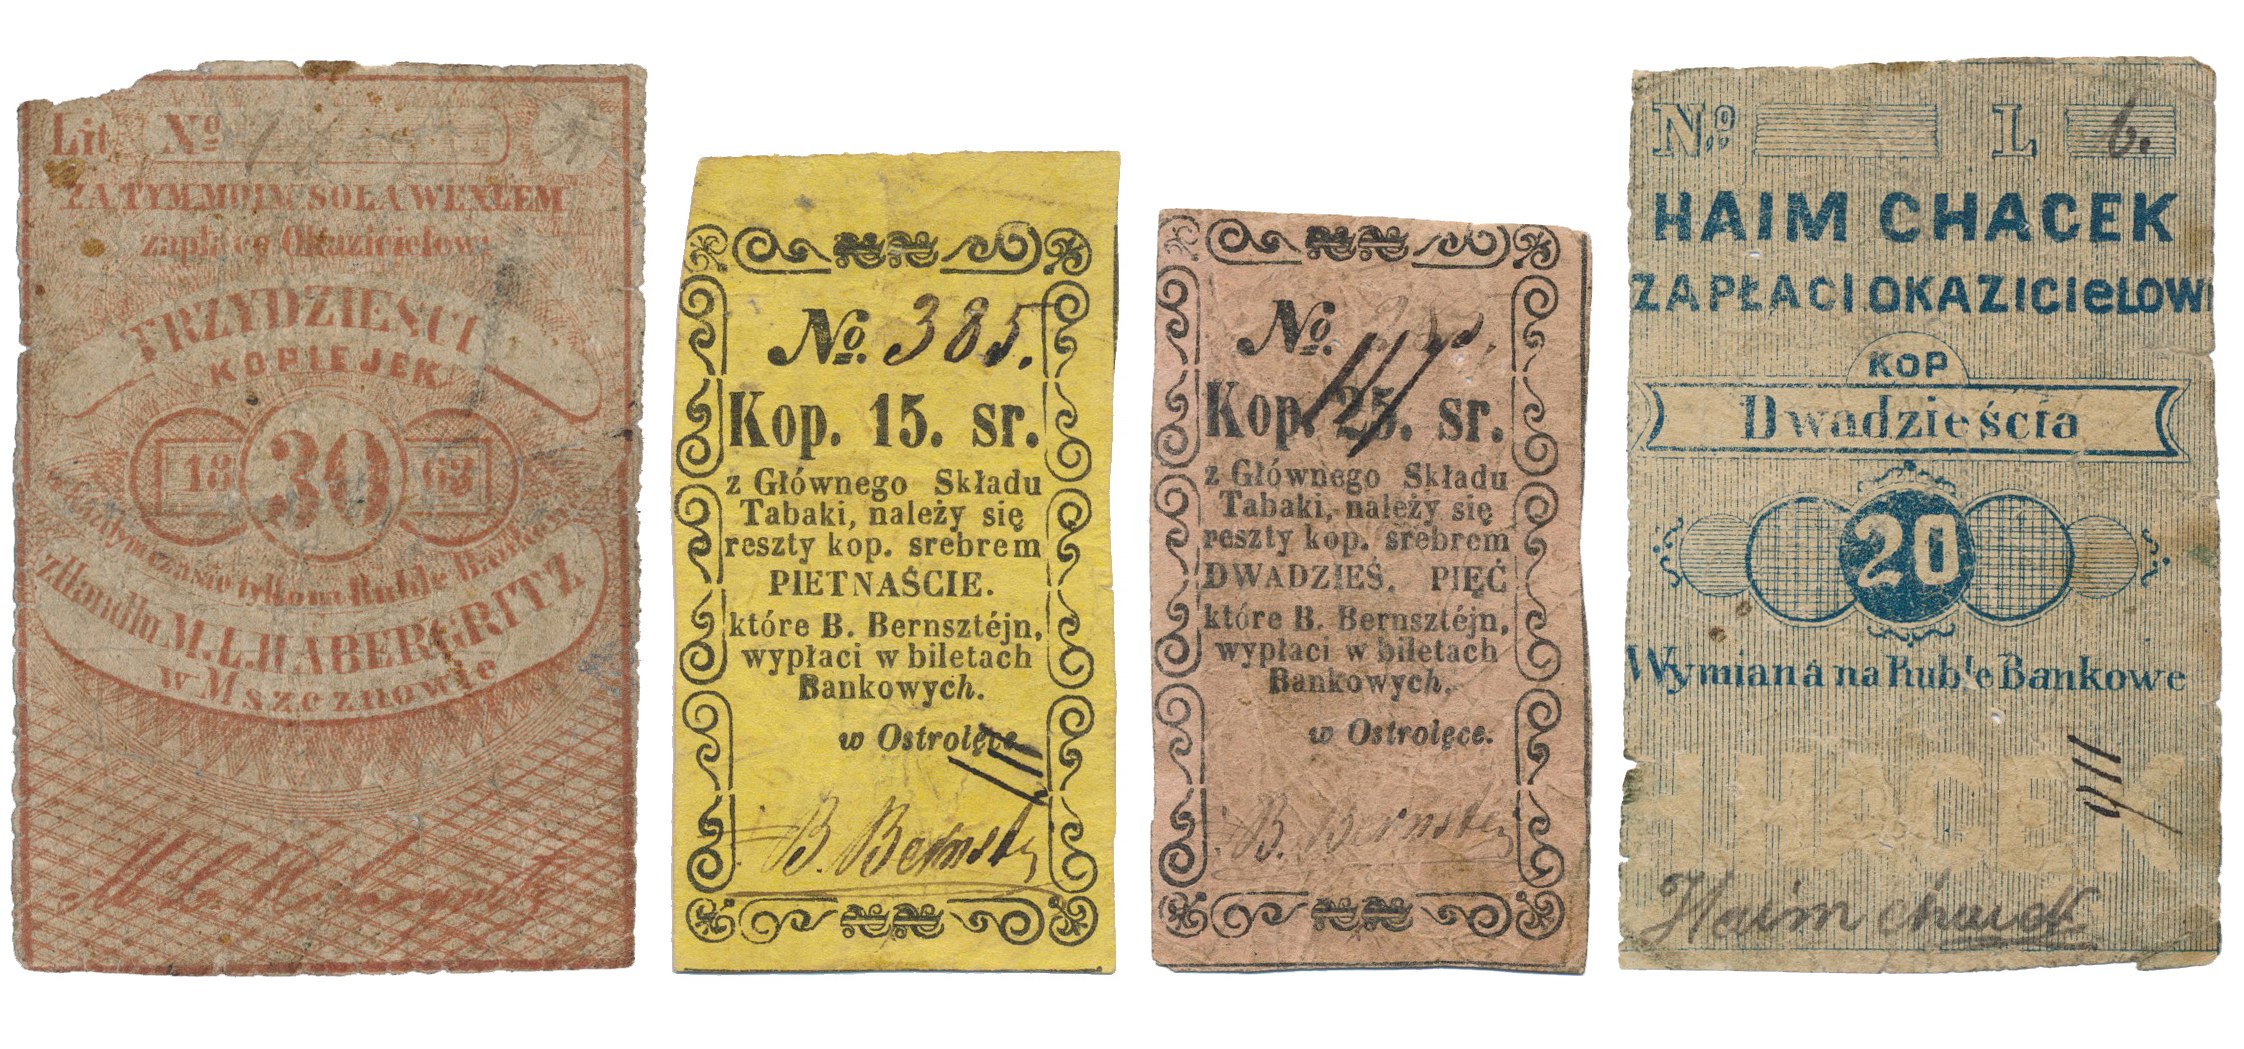 Lit. No
ZA TYM MOIM SOLA WEXLEM
zapłacę Okazicielowi
TRZYDZIEŚCI
KOPIEJEK
18 30 63
każdym czasie tylko na Ruble Bankowe
z Handlu M.L.HABERGRITZ
w Mszczonowie
No. 385.
Kop. 15. sr.
z Głównego Składu
Tabaki, należy się
reszty kop. srebrem
PIETNAŚCIE.
które B. Bernsztéjn,
wypłaci w biletach
Bankowych.
w Ostrołęce.
B. Bernstein
No.
Kop. 25. sr.
z Głównego Składu
Tabaki, należy się
reszty kop. srebrem
DWADZIEŚ. PIĘĆ
które B. Bernsztéjn,
wypłaci w biletach
Bankowych.
w Ostrołęce.
B. Bernstein
No. L 6.
HAIM CHACEK
ZAPŁACI OKAZICIELOWI
KOP
Dwadzieścia
20
Wymiana na Ruble Bankowe
HACEK
Haim chacek